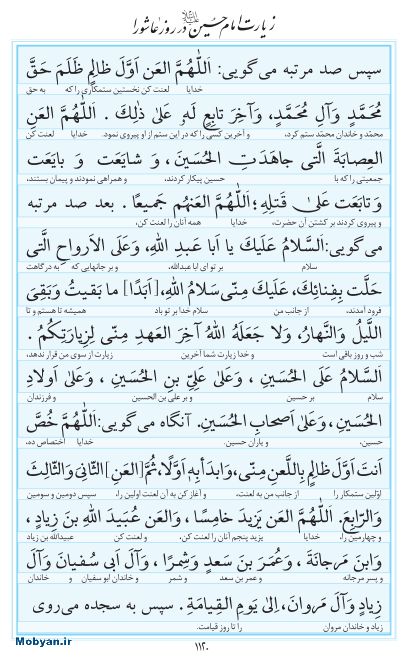 زیارت امام حسین در روز عاشورا
سپس صد مرتبه می‌گویی: اَللّٰهُمَّ العَن اَوَّلَ ظالِمٍ ظَلَمَ حَقَّ
خدایا لعنت کن نخستین ستمکاری را که به حق
مُحَمَّدٍ وَآلِ مُحَمَّدٍ، وَآخِرَ تابِعٍ لَهُ عَلىٰ ذٰلِكَ . اَللّٰهُمَّ العَنِ
محمّد و خاندان محمّد ستم کرد، و آخرین کسی را که در این ستم از او پیروی نمود. خدایا لعنت کن
العِصابَةَ الَّتي جاهَدَتِ الحُسَينَ، وَ شايَعَت وَ بايَعَت
جمعیتی را که با حسین پیکار کردند، و همراهی نمودند و پیمان بستند،
وَ تابَعَت عَلىٰ قَتلِهِ؛ اَللّٰهُمَّ العَنهُم جَميعًا . بعد صد مرتبه
و پیروی کردند بر کشتن آن حضرت، خدایا همه آنان را لعنت کن.
می‌گویی: اَلسَّلامُ عَلَيكَ يا اَبا عَبدِ اللهِ، وَعَلَى الاَرواحِ الَّتي
سلام بر تو ای ابا عبدالله، و بر جانهایی که به درگاهت
حَلَّت بِفِنائِكَ، عَلَيكَ مِنّي سَلامُ اللهِ، [اَبَدًا] ما بَقيتُ وَبَقِيَ
فرود آمدند، از جانب من سلام خدا بر تو باد همیشه تا هستم و تا
اللَّيلُ وَالنَّهارُ، وَلا جَعَلَهُ اللهُ آخِرَ العَهدِ مِنّي لِزِيارَتِكُم .
شب و روز باقی است و خدا زیارت شما آخرین زیارت از سوی من قرار ندهد،
اَلسَّلامُ عَلَى الحُسَينِ ، وَعَلىٰ عَلِيِّ بنِ الحُسَينِ ، وَعَلىٰ اَولادِ
سلام بر حسین و بر علی بن الحسین و فرزندان
الحُسَينِ ، وَعَلىٰ اَصحابِ الحُسَينِ. آنگاه می‌گویی: اَللّٰهُمَّ خُصَّ
حسین، و یاران حسین. خدایا اختصاص ده،
اَنتَ اَوَّلَ ظالِمٍ بِاللَّعنِ مِنّي، وَابدَأ بِهِ اَوَّلًا، ثُمَّ [العَنِ] الثّانِيَ وَالثّالِثَ
اوّلین ستمکار را از جانب من به لعنت، و آغاز کن به آن لعنت اولین را، سپس دومین و سومین
وَالرّابِعَ. اَللّٰهُمَّ العَن يَزيدَ خامِسًا ، وَالعَن عُبَيدَ اللهِ بنَ زِيادٍ ،
و چهارمین را، خدایا یزید پنجم آنان را لعنت کن، و لعنت کن عبیدالله بن زیاد
وَابنَ مَرجانَةَ ، وَعُمَرَ بنَ سَعدٍ وَشِمرًا ، وَآلَ اَبي سُفيانَ وَآلَ
و پسر مرجانه و عمر بن سعد و شمر و خاندان ابو سفیان و خاندان
زِيادٍ وَآلَ مَروانَ، اِلىٰ يَومِ القِيامَةِ . سپس به سجده می‌روی
زیاد و خاندان مروان را تا روز قیامت.
Mobyan.ir
۱۱۲۰